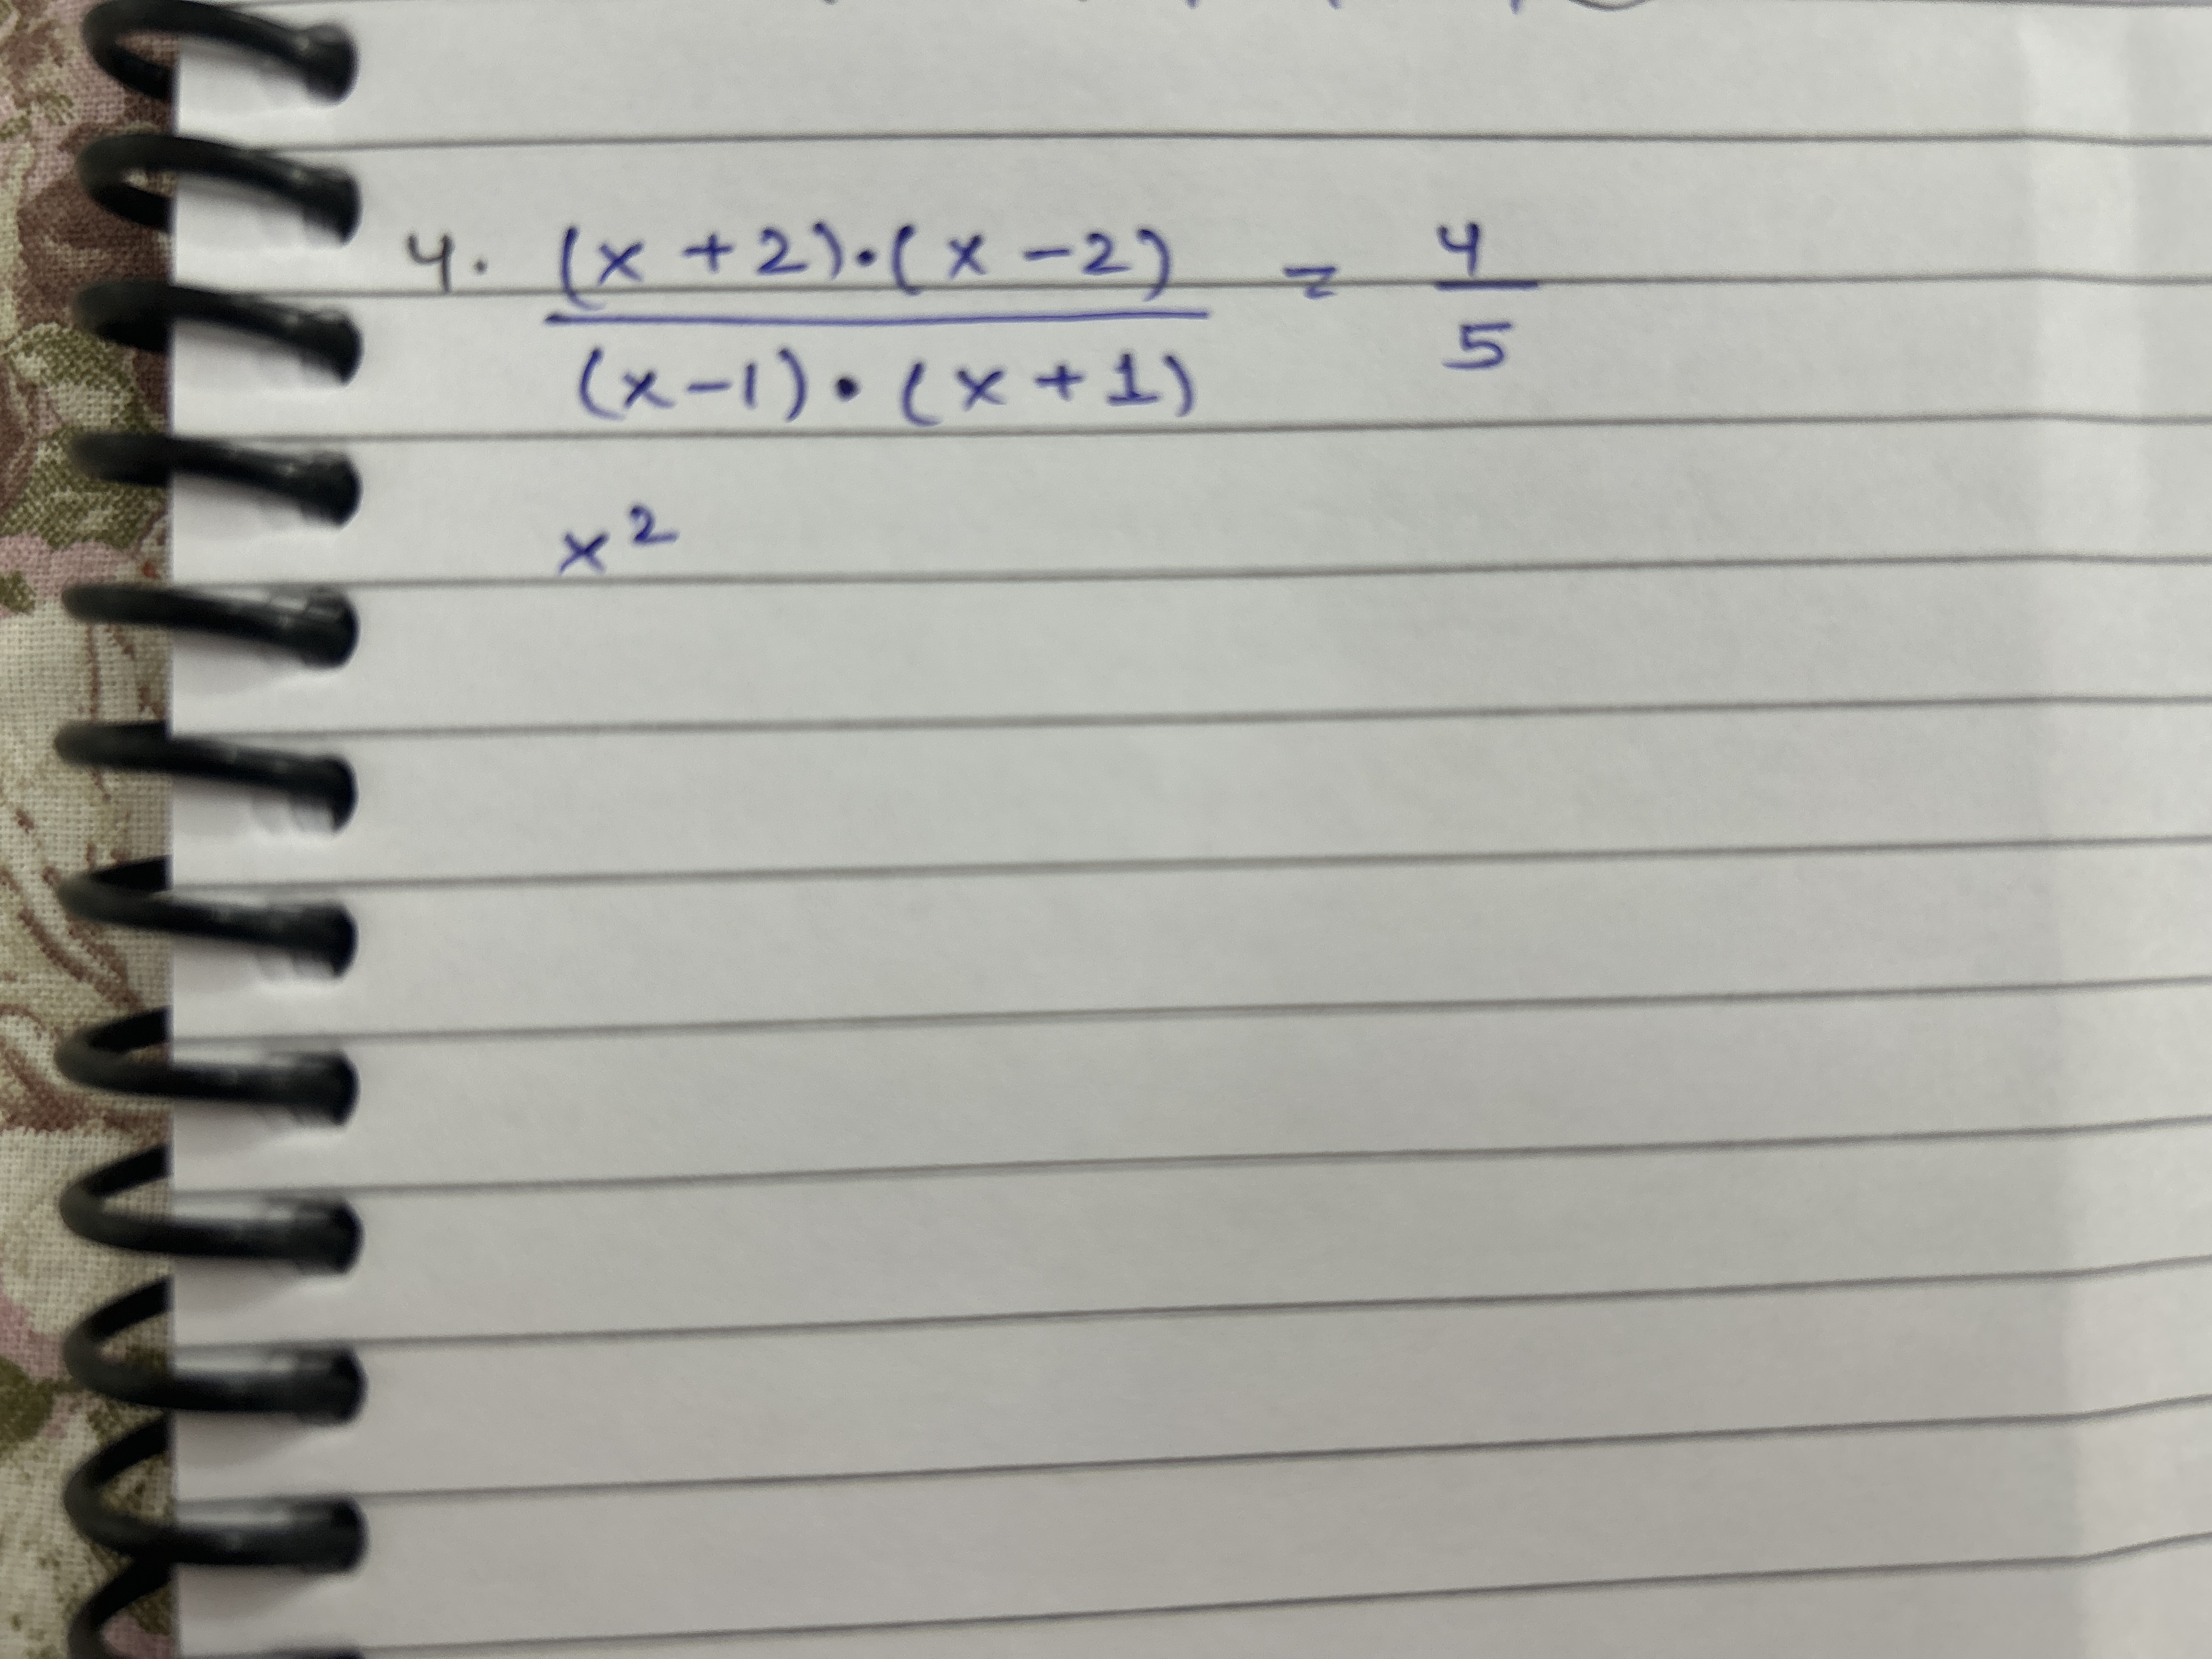 4. (x + 2)·(x - 2) / (x - 1)·(x + 1) = 4/5
x²